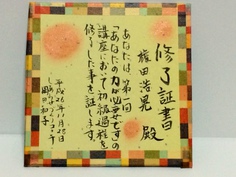 修了証書
権田浩晃 殿
あなたは、第一回
「あなたの力が必要ですの
講座において初級過程を
修了した事を証します。
平成26年11月28日
岡田和子